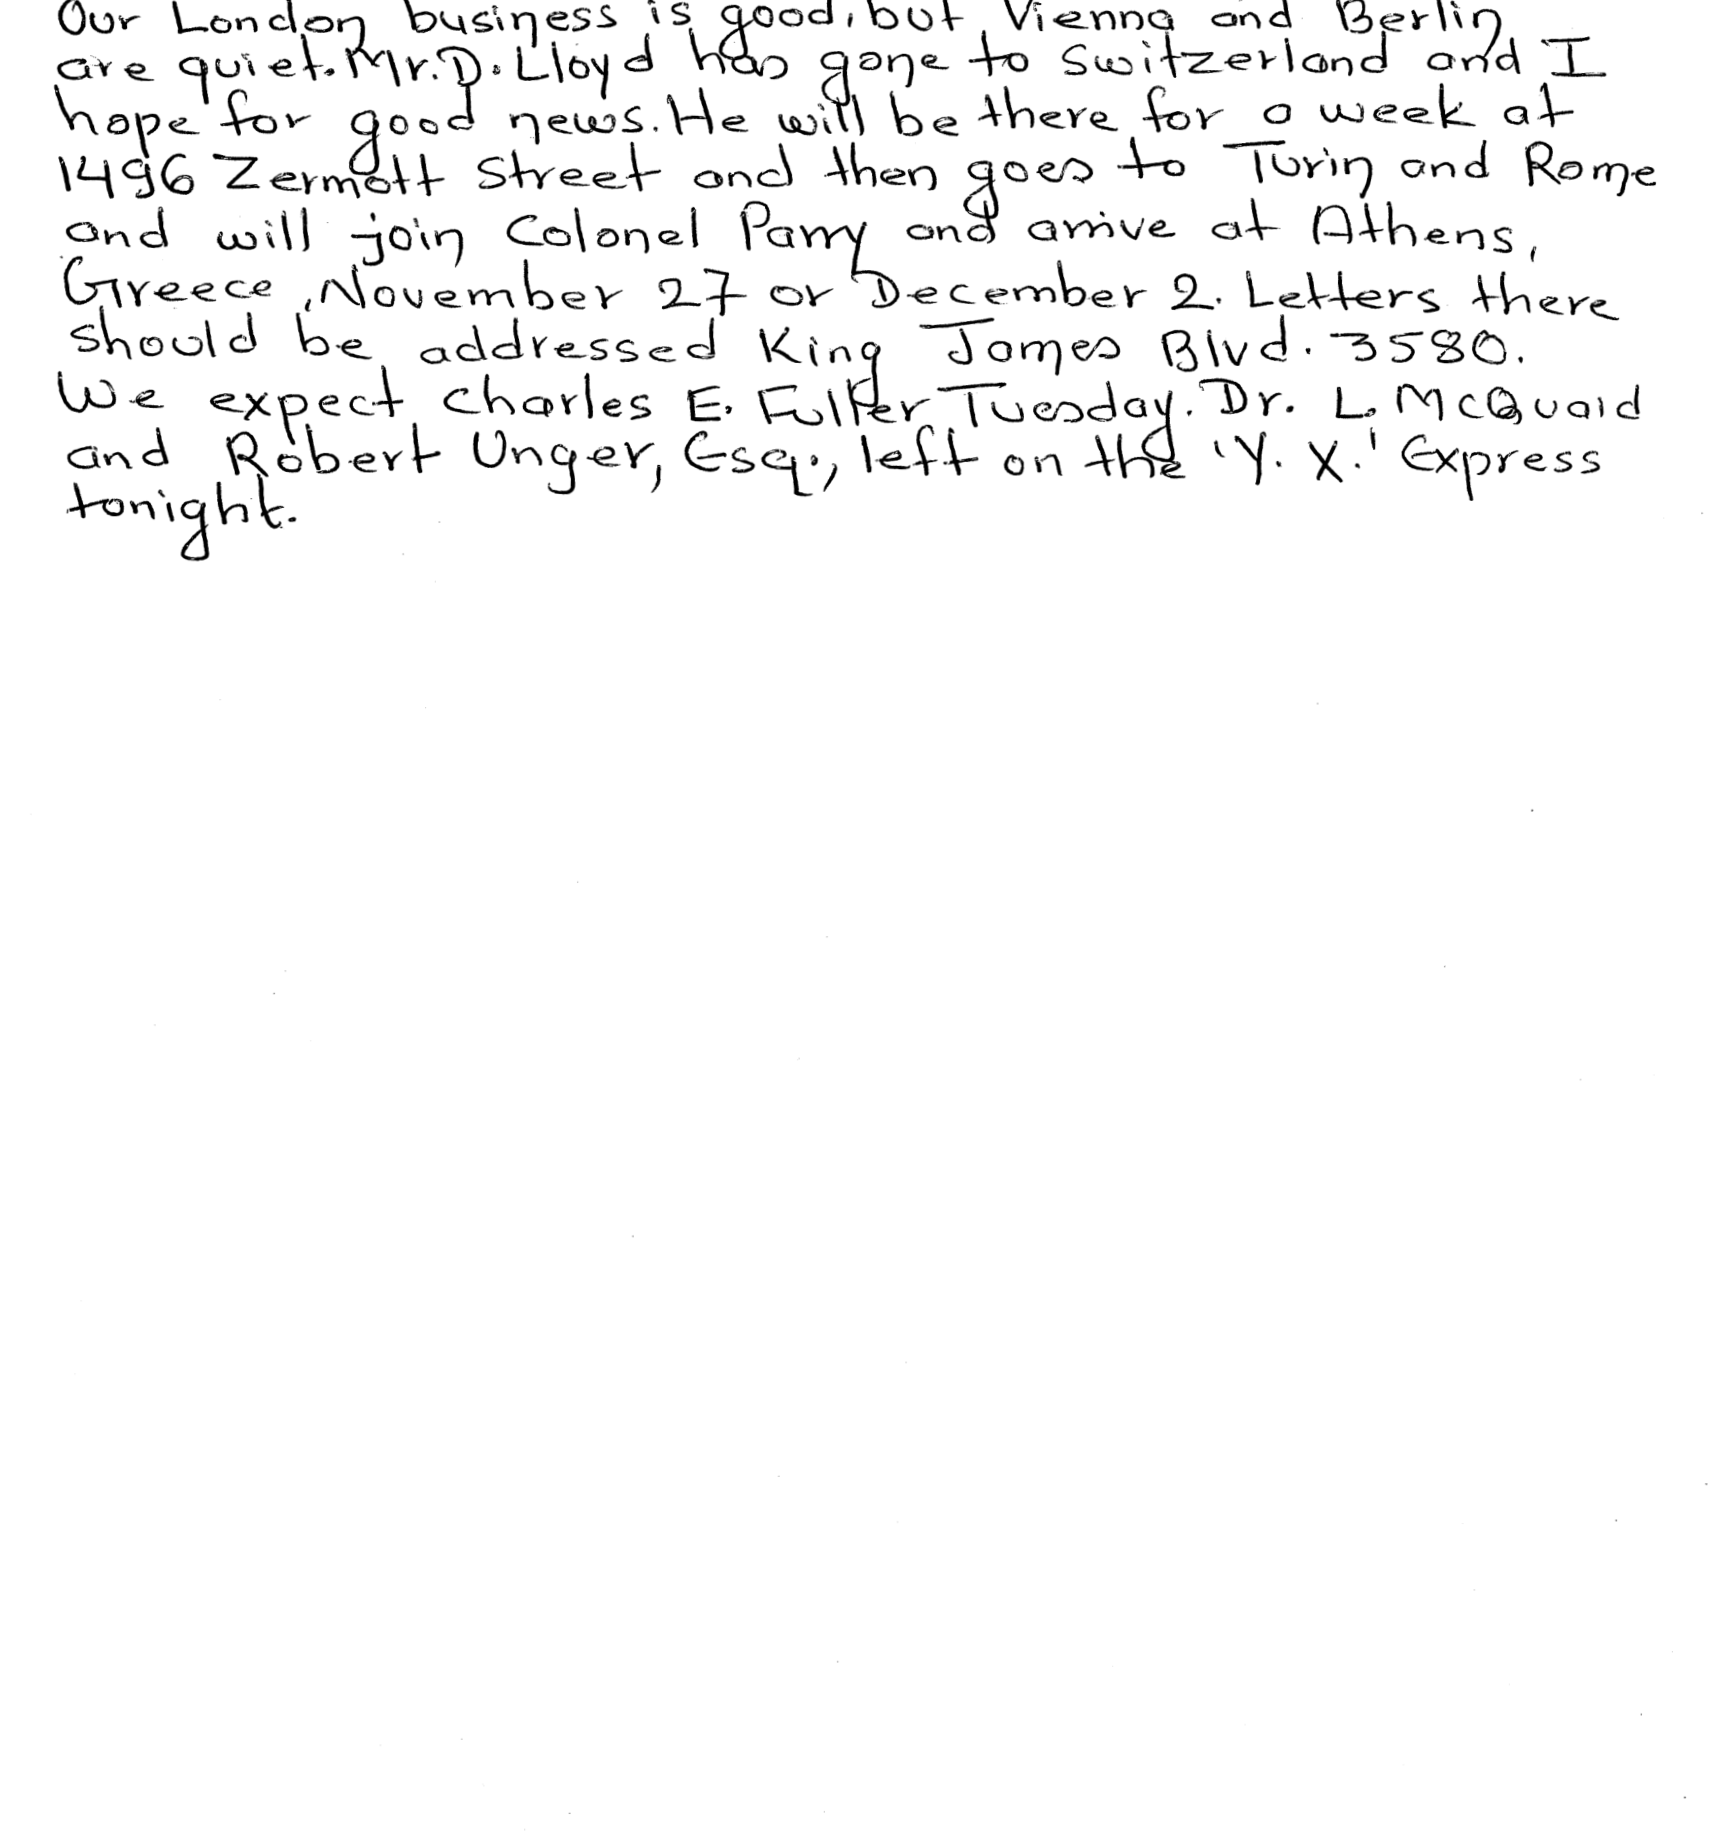 Our London business is good, but Vienna and Berlin
are quiet. Mr. D. Lloyd has gone to Switzerland and I
hope for good news. He will be there for a week at
1496 Zermott Street and then goes to Turin and Rome
and will join Colonel Parry and arrive at Athens,
Greece, November 27 or December 2. Letters there
should be addressed King James Blvd. 3580.
We expect Charles E. Fuller Tuesday. Dr. L. McQuaid
and Robert Unger, Esq., left on the 'Y. X.' Express
tonight.